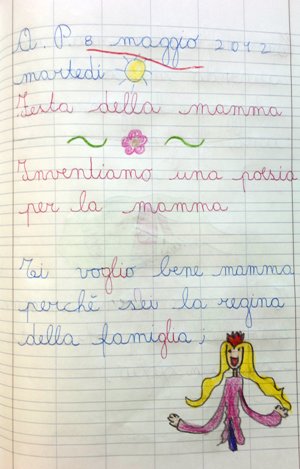 A. P. 8 maggio 2012
martedì
Festa della mamma
Inventiamo una poesia
per la mamma
Ti voglio bene mamma
perché sei la regina
della famiglia;